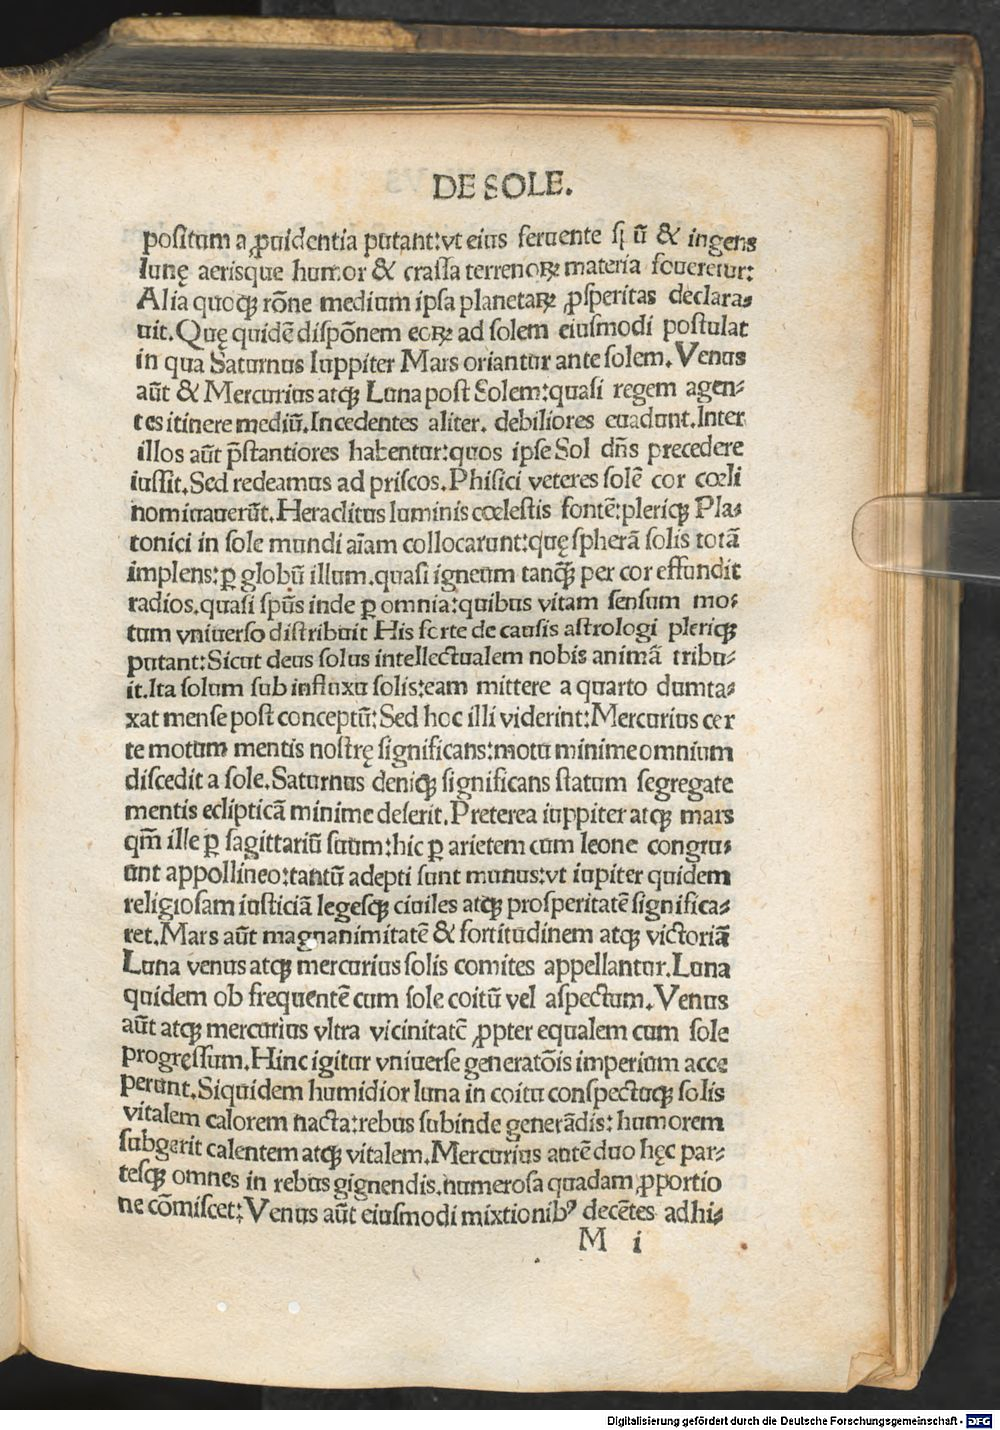 DE SOLE.
positum a ꝓuidentia putant:vt eius feruente sp̄ū & ingens
lunę aerisque humor & crassa terrenoꝝ materia foueretur:
Alia quoqꝫ rōne medium ipsa planetaꝝ ꝓsperitas declara-
uit. Quę quidē dispōnem eoꝝ ad solem eiusmodi postulat
in qua Saturnus Iuppiter Mars oriantur ante solem. Venus
aūt & Mercurius atqꝫ Luna post Solem:quasi regem agen-
tes itinere mediū. Incedentes aliter. debiliores euadunt. Inter
illos aūt p̄stantiores habentur:quos ipse Sol dn̄s precedere
iussit. Sed redeamus ad priscos. Phisici veteres solē cor cœli
nominauerūt. Heraclitus luminis cœlestis fontē:pleriqꝫ Pla-
tonici in sole mundi aīam collocarunt:quę spherā solis totā
implens:ꝑ globū illum.quasi igneum tanqꝫ̄ per cor effundit
radios.quasi spūs inde ꝑ omnia:quibus vitam sensum mo-
tum vniuerso distribuit His forte de causis astrologi pleriqꝫ
putant:Sicut deus solus intellectualem nobis animā tribu-
it.Ita solum sub influxu solis:eam mittere a quarto dumta-
xat mense post conceptū:Sed hoc illi viderint:Mercurius cer
te motum mentis nostrę significans:motu minime omnium
discedit a sole. Saturnus deniqꝫ significans statum segregate
mentis eclipticā minime deserit. Preterea iuppiter atqꝫ mars
qm̄ ille ꝑ sagittariū suum:hic ꝑ arietem cum leone congru-
unt appollineo:tantū adepti sunt munus:vt iupiter quidem
religiosam iusticiā legesqꝫ ciuiles atqꝫ prosperitatē significa-
ret. Mars aūt magnanimitatē & fortitudinem atqꝫ victoriā
Luna venus atqꝫ mercurius solis comites appellantur. Luna
quidem ob frequentē cum sole coitū vel aspectum. Venus
aūt atqꝫ mercurius vltra vicinitatē ꝓpter equalem cum sole
progressum. Hinc igitur vniuerse generatōis imperium acce
perunt. Siquidem humidior luna in coitu conspectuqꝫ solis
vitalem calorem nacta:rebus subinde generādis:humorem
subgerit calentem atqꝫ vitalem. Mercurius autē duo hęc par-
tesqꝫ omnes in rebus gignendis.numerosa quadam ꝓportio
ne cōmiscet:Venus aūt eiusmodi mixtionibꝰ decētes adhi-
M i
Digitalisierung gefördert durch die Deutsche Forschungsgemeinschaft - DFG